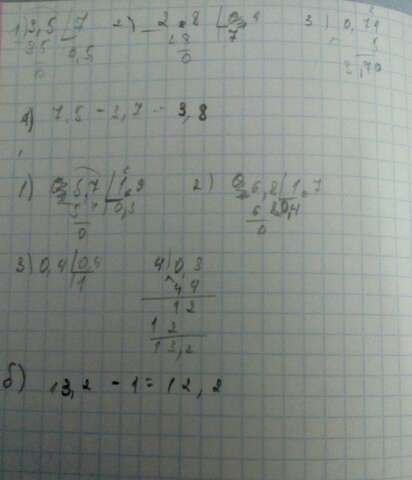 1) 3,5 | 7 2) 2,8 | 0,4 3) 0,74
35 0,5 28 7 5
0 0 3,70
4) 7,5 - 3,7 = 3,8
1) 0,5,7 | 1,9 2) 0,6,8 | 1,7
57 0,3 68 0,4
0 0
3) 0,4 | 0,4 4) 0,3
1 44
12
12
13,2
б) 13,2 - 1 = 12,2